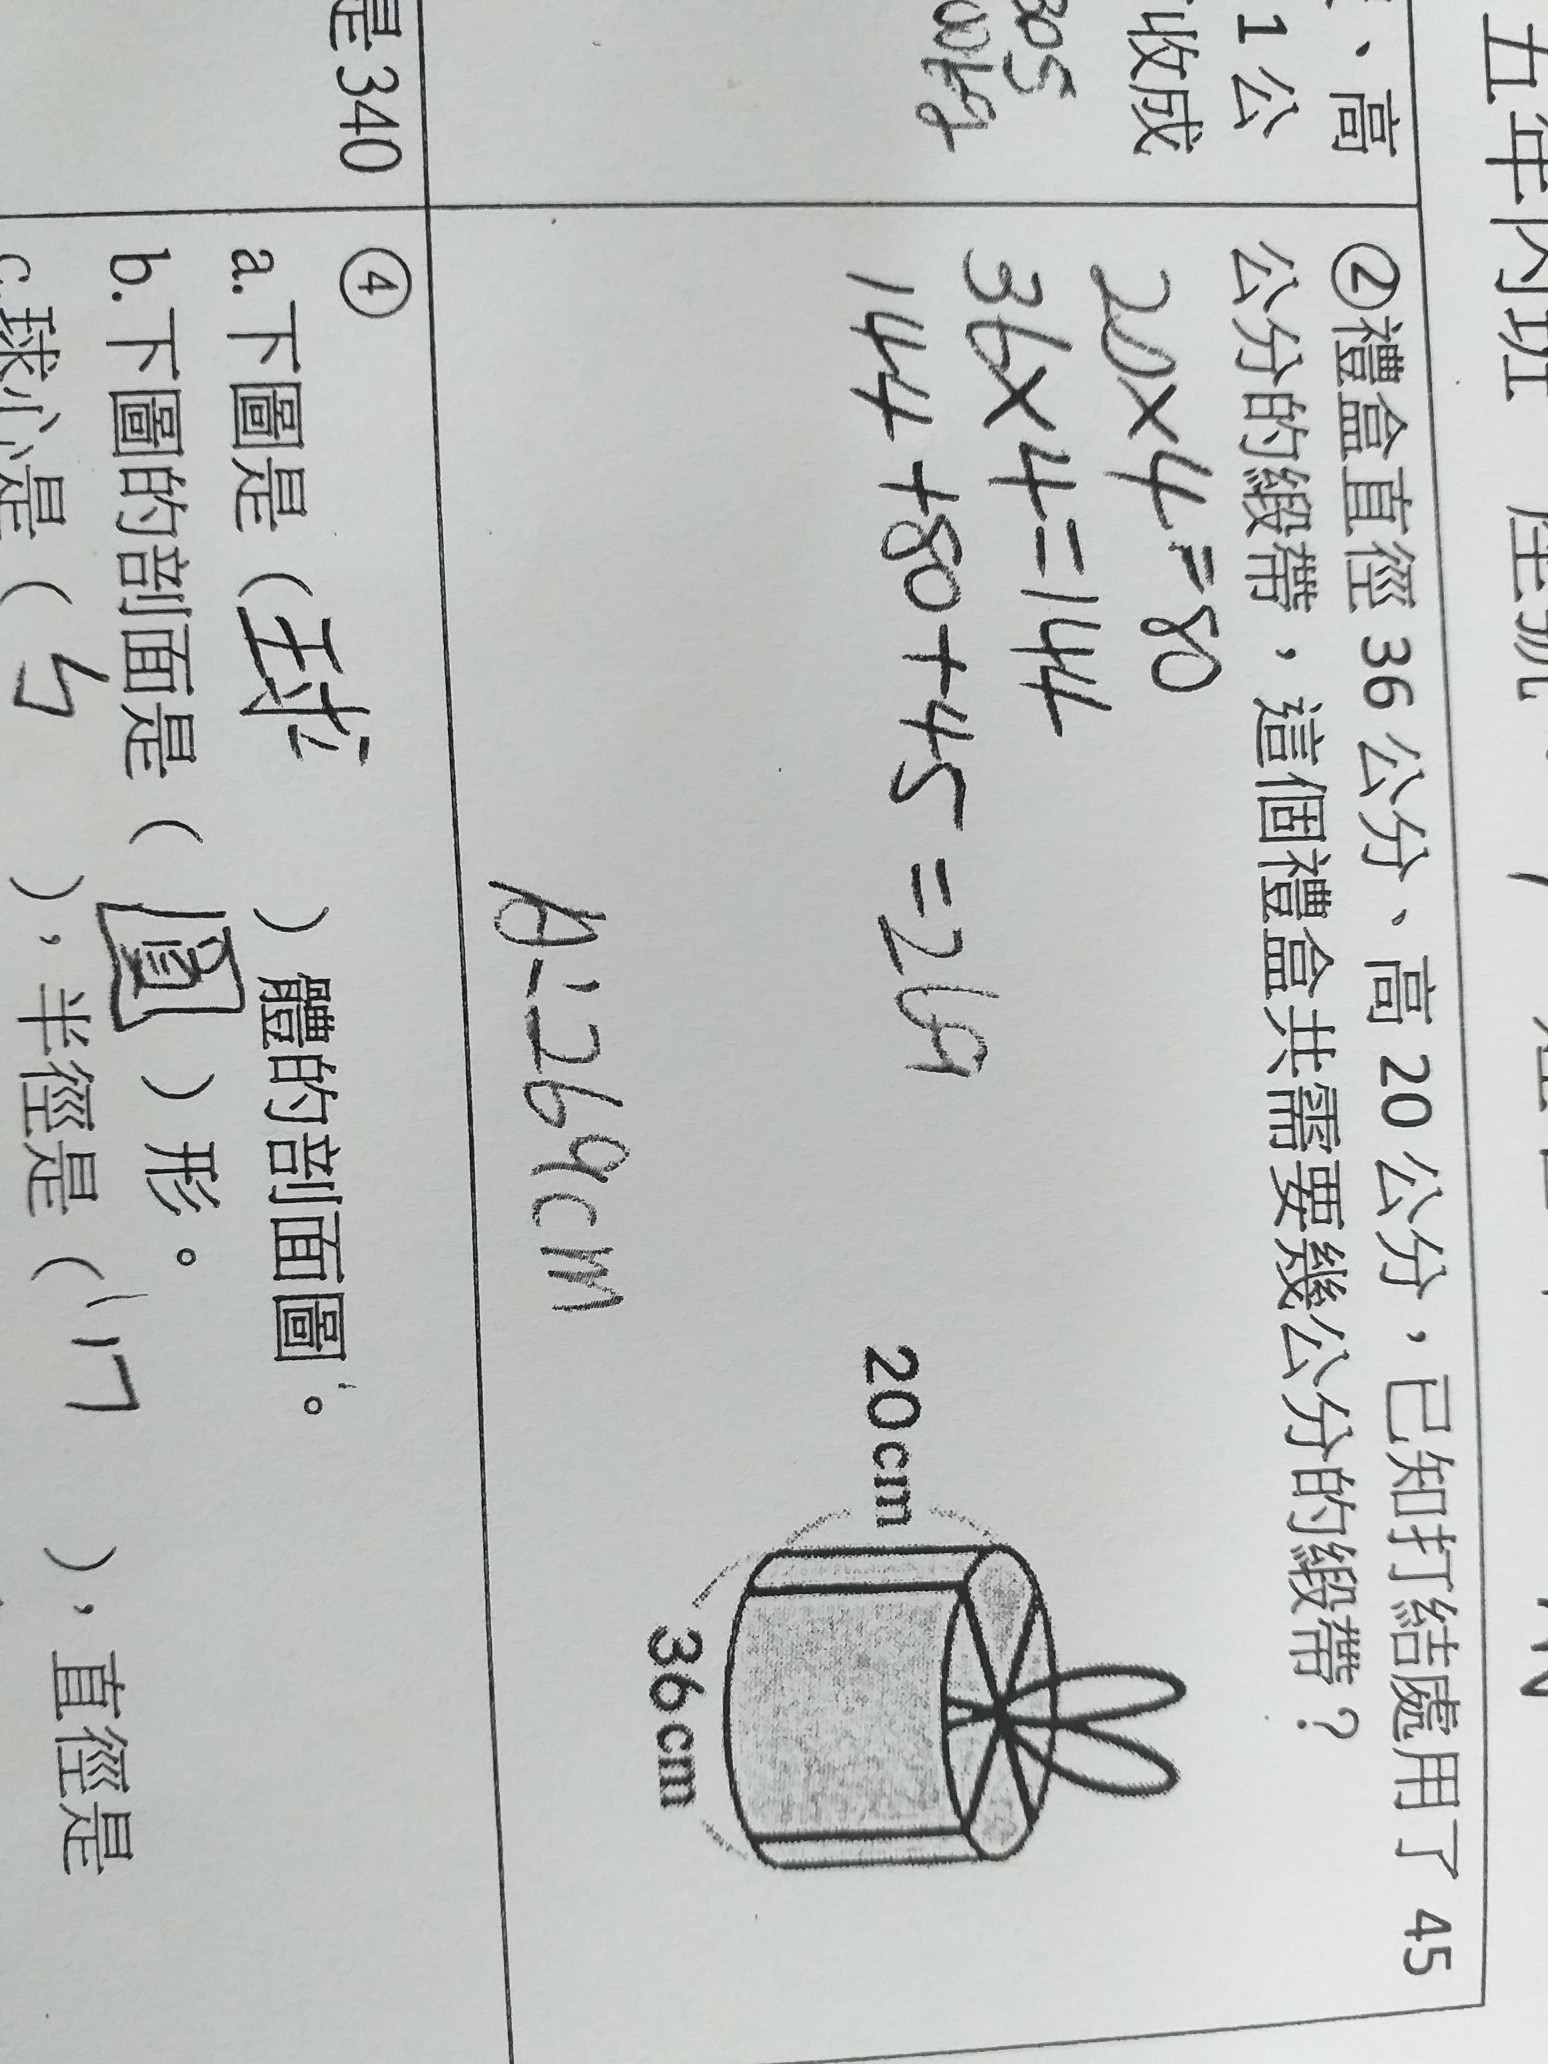 五年丙班
、高
1公
收成
305
00kg
②禮盒直徑 36 公分、高 20 公分，已知打結處用了 45
公分的緞帶，這個禮盒共需要幾公分的緞帶？
20×4=80
36×4=144
144+80+45=269
20cm
36cm
A:269cm
是 340
④
a.下圖是（球）體的剖面圖。
b.下圖的剖面是（圓）形。
c.球心是（ㄅ），半徑是（17），直徑是